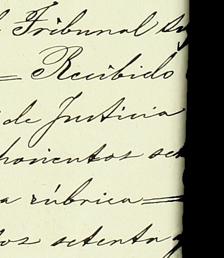 Tribunal Su
= Recibido
de Justicia
novientos set
a rúbrica =
os setenta y